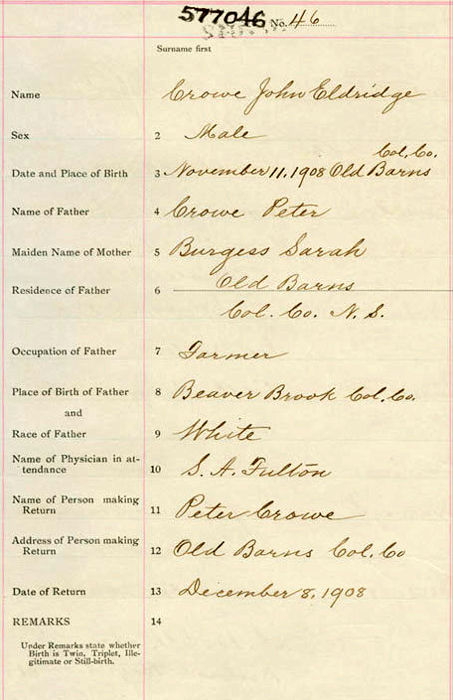 577046 No. 46
Surname first
Name Crowe John Eldridge
Sex 2 Male
Col. Co.
Date and Place of Birth 3 November 11, 1908 Old Barns
Name of Father 4 Crowe Peter
Maiden Name of Mother 5 Burgess Sarah
Residence of Father 6 Old Barns
Col. Co. N. S.
Occupation of Father 7 Farmer
Place of Birth of Father 8 Beaver Brook Col. Co.
and
Race of Father 9 White
Name of Physician in at-
tendance 10 S. A. Fulton
Name of Person making
Return 11 Peter Crowe
Address of Person making
Return 12 Old Barns Col. Co
Date of Return 13 December 8, 1908
REMARKS 14
Under Remarks state whether
Birth is Twin, Triplet, Ille-
gitimate or Still-birth.